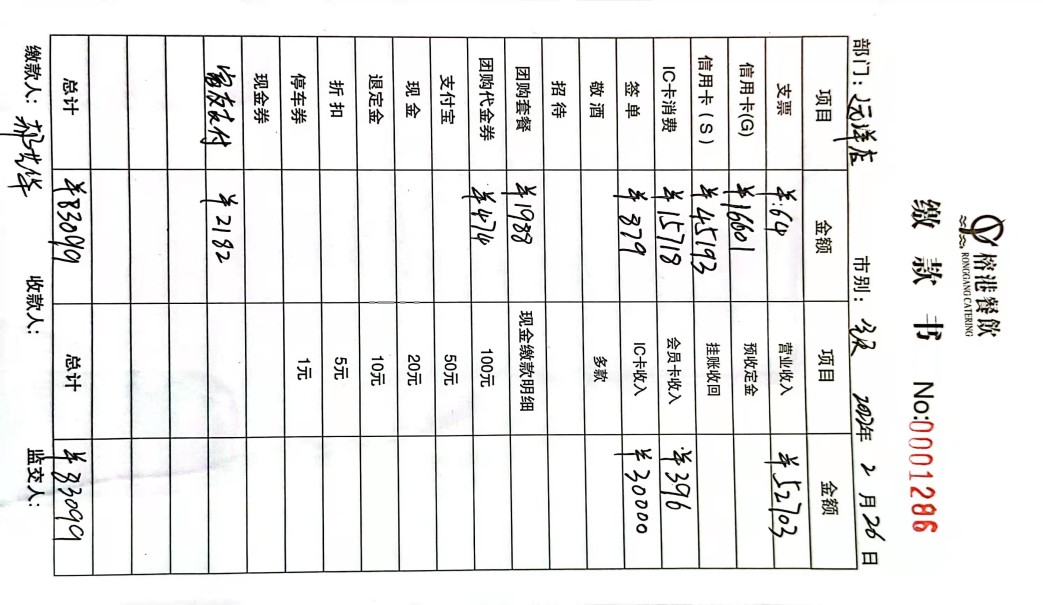 榕港餐饮
RONGGANG CATERING
缴 款 书 No:0001286
部门: 远洋店 市别: 2022年 2 月 26 日
项目 金额 项目 金额
支票 ¥:64 营业收入 ¥52703
信用卡(G) ¥16601 预收定金
信用卡(S) ¥45193 挂账收回
IC卡消费 ¥15718 会员卡收入 ¥396
签单 ¥879 IC卡收入 ¥30000
敬酒 多款
招待
团购套餐 ¥1988 现金缴款明细
团购代金券 ¥474 100元
支付宝 50元
现金 20元
退定金 10元
折扣 5元
停车券 1元
现金券
富友支付 ¥2182
总计 ¥83099 总计 ¥83099
缴款人: 收款人: 监交人: